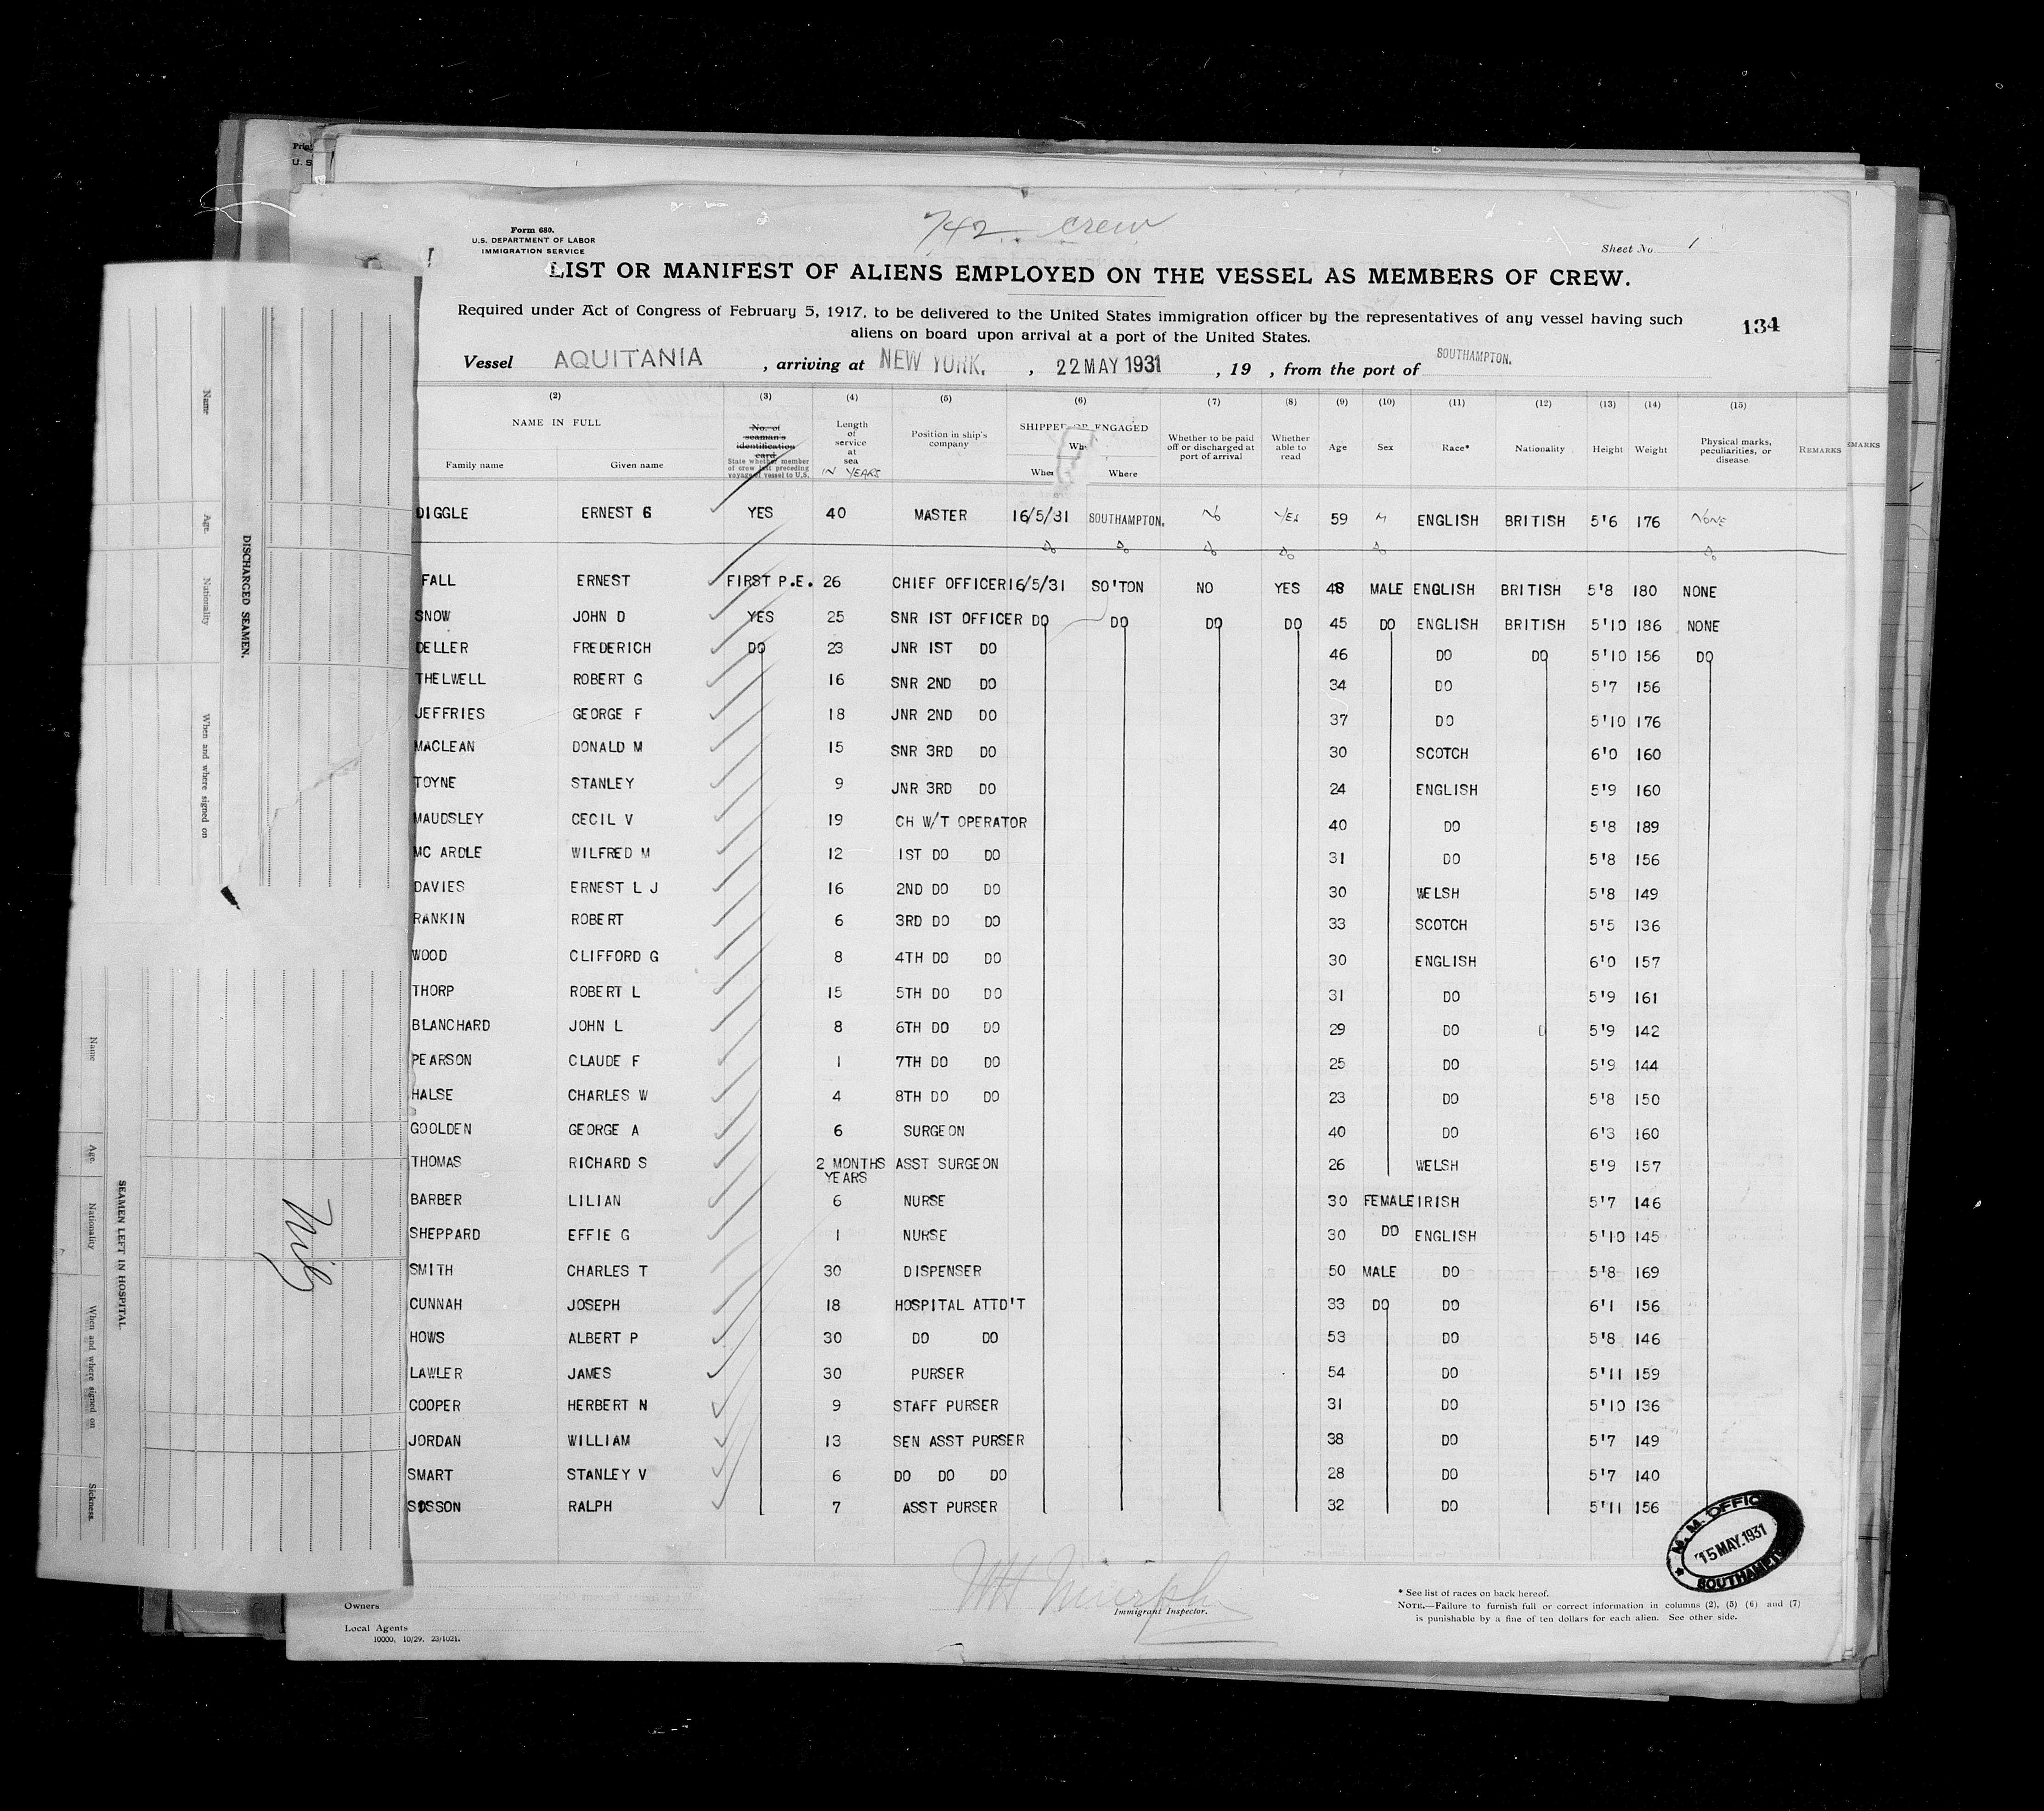 742 crew
Form 680.
U.S. DEPARTMENT OF LABOR
IMMIGRATION SERVICE
Sheet No. 1
LIST OR MANIFEST OF ALIENS EMPLOYED ON THE VESSEL AS MEMBERS OF CREW.
Required under Act of Congress of February 5, 1917, to be delivered to the United States immigration officer by the representatives of any vessel having such
aliens on board upon arrival at a port of the United States.
134
Vessel AQUITANIA , arriving at NEW YORK. , 22 MAY 1931 , 19 , from the port of SOUTHAMPTON.
(2) (3) (4) (5) (6) (7) (8) (9) (10) (11) (12) (13) (14) (15)
NAME IN FULL
Family name Given name
No. of seaman's identification card
State whether member of crew last preceding voyage of vessel to U.S.
Length of service at sea IN YEARS
Position in ship's company
SHIPPED OR ENGAGED
When Where
Whether to be paid off or discharged at port of arrival
Whether able to read
Age Sex Race* Nationality Height Weight
Physical marks, peculiarities, or disease
REMARKS
DIGGLE ERNEST G YES 40 MASTER 16/5/31 SOUTHAMPTON. No YES 59 M ENGLISH BRITISH 5'6 176 NONE
Do Do Do Do Do Do
FALL ERNEST FIRST P.E. 26 CHIEF OFFICER 16/5/31 SO'TON NO YES 48 MALE ENGLISH BRITISH 5'8 180 NONE
SNOW JOHN D YES 25 SNR 1ST OFFICER DO DO DO DO 45 DO ENGLISH BRITISH 5'10 186 NONE
DELLER FREDERICH DO 23 JNR 1ST DO 46 DO DO 5'10 156 DO
THELWELL ROBERT G 16 SNR 2ND DO 34 DO 5'7 156
JEFFRIES GEORGE F 18 JNR 2ND DO 37 DO 5'10 176
MACLEAN DONALD M 15 SNR 3RD DO 30 SCOTCH 6'0 160
TOYNE STANLEY 9 JNR 3RD DO 24 ENGLISH 5'9 160
MAUDSLEY CECIL V 19 CH W/T OPERATOR 40 DO 5'8 189
MC ARDLE WILFRED M 12 1ST DO DO 31 DO 5'8 156
DAVIES ERNEST L J 16 2ND DO DO 30 WELSH 5'8 149
RANKIN ROBERT 6 3RD DO DO 33 SCOTCH 5'5 136
WOOD CLIFFORD G 8 4TH DO DO 30 ENGLISH 6'0 157
THORP ROBERT L 15 5TH DO DO 31 DO 5'9 161
BLANCHARD JOHN L 8 6TH DO DO 29 DO 5'9 142
PEARSON CLAUDE F 1 7TH DO DO 25 DO 5'9 144
HALSE CHARLES W 4 8TH DO DO 23 DO 5'8 150
GOOLDEN GEORGE A 6 SURGEON 40 DO 6'3 160
THOMAS RICHARD S 2 MONTHS ASST SURGEON 26 WELSH 5'9 157
YEARS
BARBER LILIAN 6 NURSE 30 FEMALE IRISH 5'7 146
SHEPPARD EFFIE G 1 NURSE 30 DO ENGLISH 5'10 145
SMITH CHARLES T 30 DISPENSER 50 MALE DO 5'8 169
CUNNAH JOSEPH 18 HOSPITAL ATTD'T 33 DO DO 6'1 156
HOWS ALBERT P 30 DO DO 53 DO 5'8 146
LAWLER JAMES 30 PURSER 54 DO 5'11 159
COOPER HERBERT N 9 STAFF PURSER 31 DO 5'10 136
JORDAN WILLIAM 13 SEN ASST PURSER 38 DO 5'7 149
SMART STANLEY V 6 DO DO DO 28 DO 5'7 140
SISSON RALPH 7 ASST PURSER 32 DO 5'11 156
M.M. OFFICE
15 MAY.1931
SOUTHAMPTON
Immigrant Inspector.
Owners
Local Agents
10000, 10/29. 23/1021.
* See list of races on back hereof.
NOTE.—Failure to furnish full or correct information in columns (2), (5) (6) and (7)
is punishable by a fine of ten dollars for each alien. See other side.
DISCHARGED SEAMEN.
Name Age. Nationality When and where signed on
SEAMEN LEFT IN HOSPITAL
Name Age. Nationality When and where signed on Sickness.